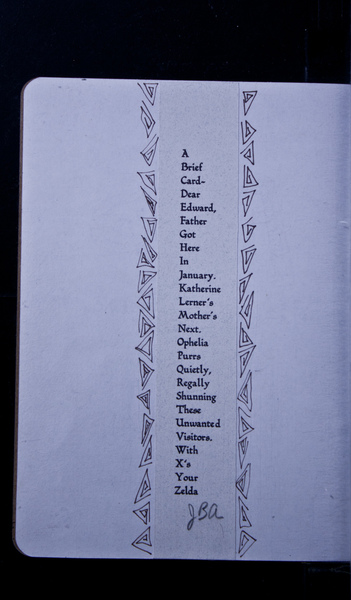 A
Brief
Card-
Dear
Edward,
Father
Got
Here
In
January.
Katherine
Lerner's
Mother's
Next.
Ophelia
Purrs
Quietly,
Regally
Shunning
These
Unwanted
Visitors.
With
X's
Your
Zelda
JBA